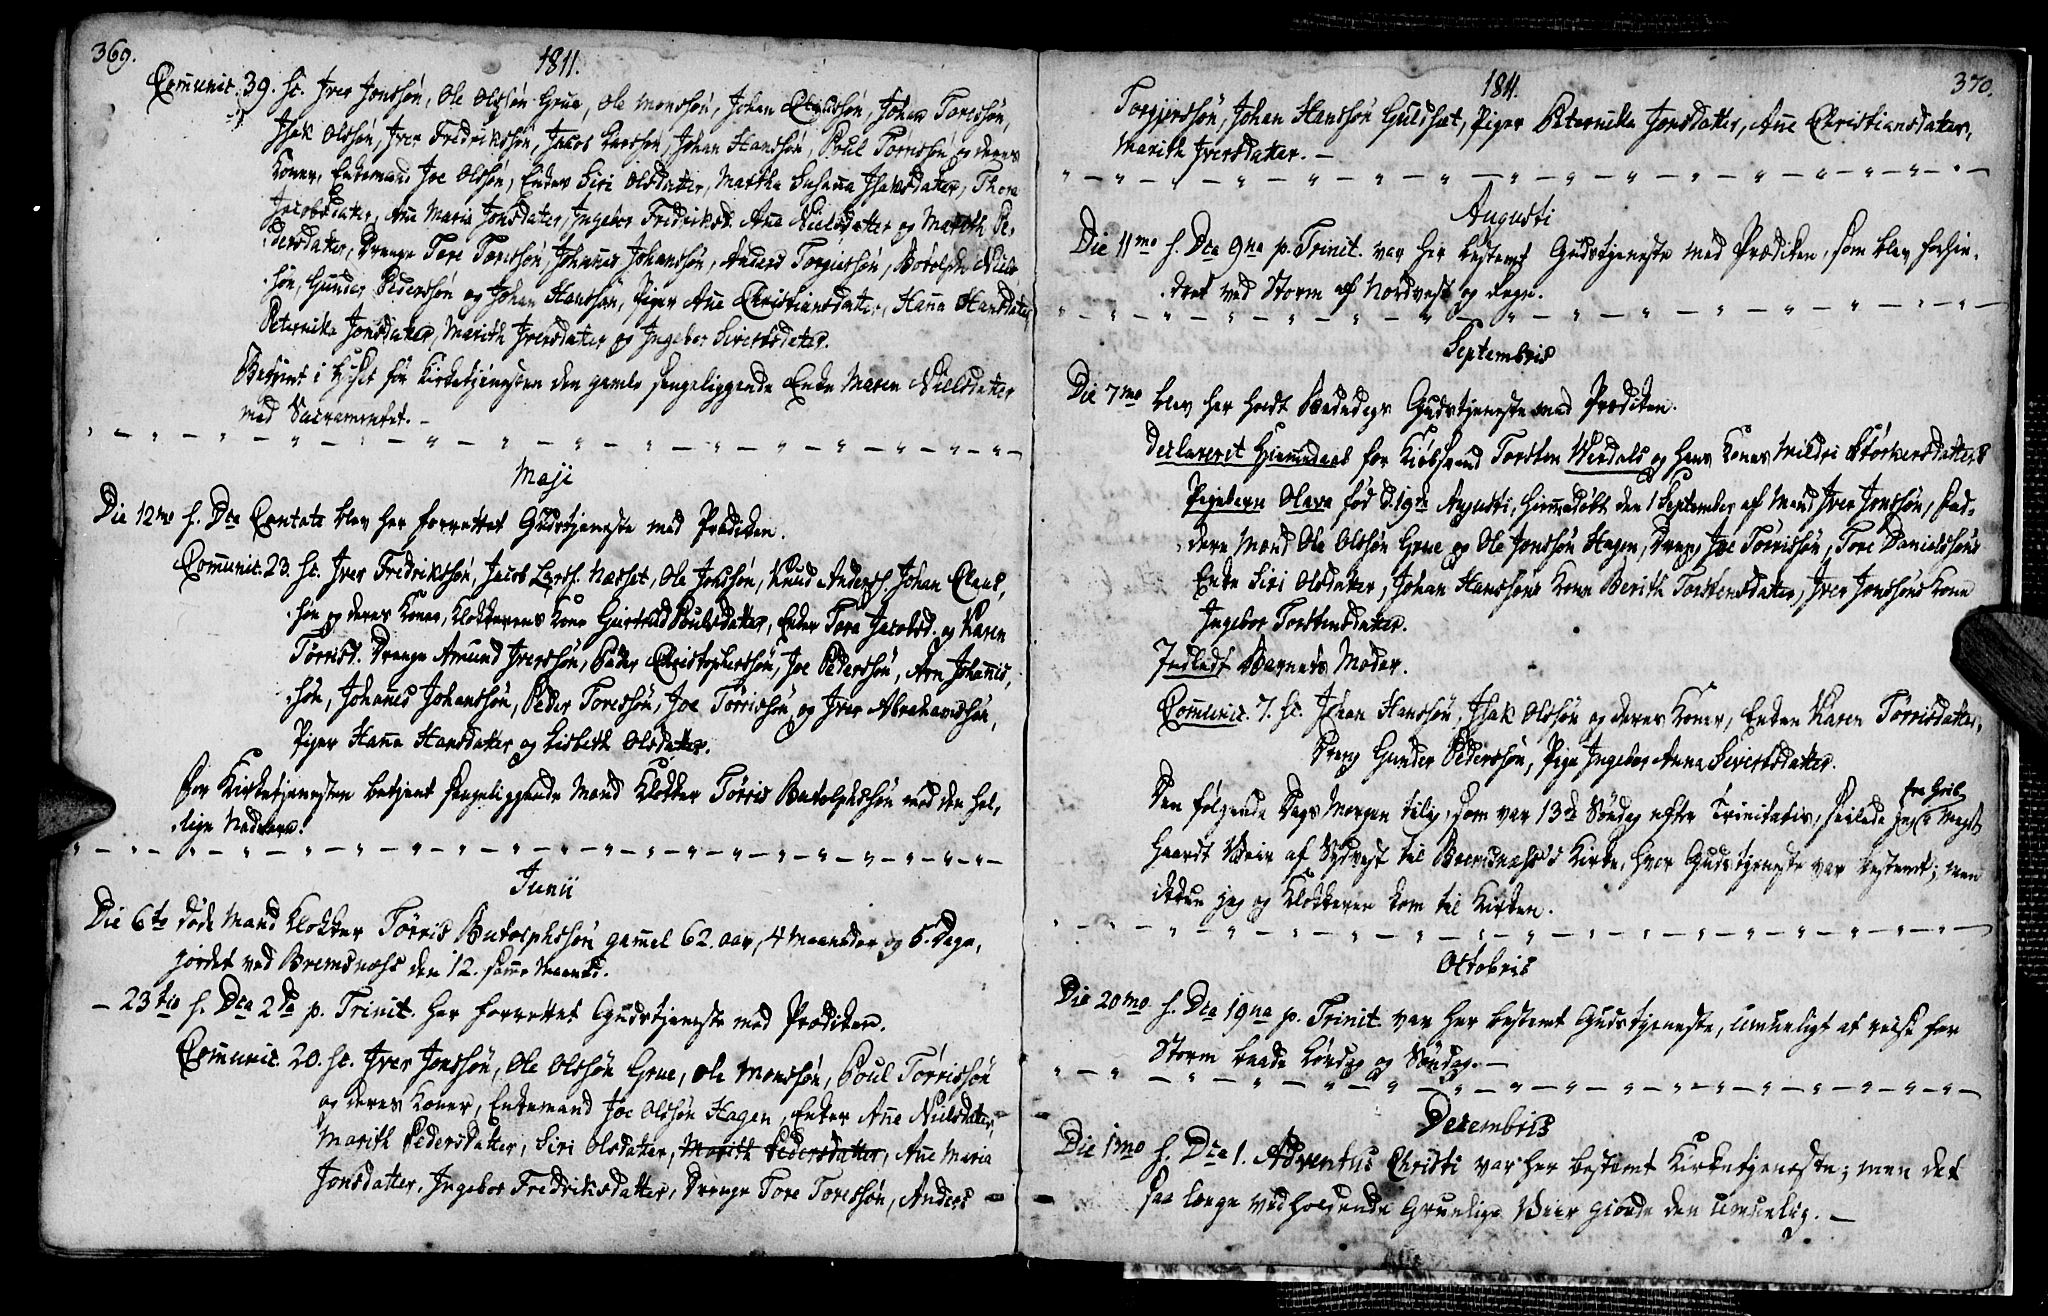 369.
1811.
Com̃unic. 39. sc. Jver Jonssøn, Ole Olssøn Grue, Ole Monssøn, Johan Clausssøn, Johan Toressøn,
Jsak Olssøn, Jver Fredrikssøn, Jacob Larssøn, Johan Hanssøn, Poul Tørrissøn og deres
Koner, Enkemand Joe Olssøn, Enker Siri Olsdatter, Martha Susanna Jsaksdatter, Thora
Jacobsdatter, Ane Maria Jonsdatter, Jngebor Fredriksd. Ane Nielsdatter og Marith Pe-
dersdatter, Drenge Tore Toressøn, Johannes Johanssøn, Anders Torgerssøn, Botolph Niels-
søn, Gunder Pederssøn og Johan Hanssøn, Piger Ane Christiansdatter, Hanna Hansdatter,
Peternika Jonsdatter, Marith Jversdatter og Jngebor Sivertsdatter.
Betient i Huset før Kirketjenesten den gamle sengeliggende Enke Maren Nielsdatter
med Sacramentet. –
Maji
Die 12mo s. Dca Cantate blev her forrettet Gudstjeneste med Prædiken.
Com̃unic. 23. sc. Jver Fredrikssøn, Jacob Larss. Næsset, Ole Jonssøn, Knud Anderss. Johan Claus-
søn og deres Koner, Klokkerens Kone Giertrud Poulsdatter, Enker Tora Jacobsd. og Karen
Tørrisd. Drenge Amund Jverssøn, Peder Christopherssøn, Joe Pederssøn, Arn Johannis-
søn, Johannes Johanssøn, Peder Toressøn, Joe Tørrissøn og Jver Abrahamssøn,
Piger Hanna Hansdatter og Lisbeth Olsdatter.
Før Kirketjenesten betjent sengeliggende Mand Klokker Tørris Butolphssøn med den hel-
lige Nadvere.
Junii
Die 6te døde Mand Klokker Tørris Butolphssøn gammel 62. aar, 4 Maaneder og 5. Dage,
jordet ved Bremsnæss den 12. samme Maaned.
– 23tio s. Dca 2da p. Trinit. her forrettet Gudstjeneste med Prædiken.
Com̃unic. 20. sc. Jver Jonssøn, Ole Olssøn Grue, Ole Monssøn, Poul Tørrissøn
og deres Koner, Enkemand Joe Olssøn Hagen, Enker Ane Nielsdatter,
Marith Pedersdatter, Siri Olsdatter, Marith Pedersdatter, Ane Maria
Jonsdatter, Jngebor Fredriksdatter, Drenge Tore Toressøn, Anders
370.
1811.
Torgerssøn, Johan Hanssøn Guldsæt, Piger Peternika Jonsdatter, Ane Christiansdatter,
Marith Jversdatter. –
Augusti
Die 11mo s. Dca 9na p. Trinit. var her bestemt Gudstjeneste med Prædiken, som blev forhin-
dret ved Storm af Nordvest og Regn.
Septembris
Die 7mo blev her holdt Bededags Gudstjeneste med Prædiken.
Declareret Hiemmedaab for Kiøbmand Torsten Werdals og hans Kones Mildri Størkersdatters
Pigebarn Olava fød d. 19de Augusti, hiemmedøbt den 1 September af Mand Jver Jonssøn, Fad-
dere Mænd Ole Olssøn Grue og Ole Jonssøn Hagen, Dreng Joe Tørrissøn, Tore Danielssøns
Enke Siri Olsdatter, Johan Hanssøns Kone Berith Torstensdatter, Jver Jonssøns Kone
Jngebor Torstensdatter.
Jndledt Barnets Moder.
Com̃unic. 7. sc. Johan Hanssøn, Jsak Olssøn og deres Koner, Enken Karen Tørrisdatter,
Dreng Gunder Pederssøn, Pige Jngebor Anna Sivertsdatter.
Den følgende Dags Morgen tilig, som var 13de Søndag efter Trinitatis, seilede jeg fra Grib i meget
haardt Veir af Sydvest til Bremsnæss's Kirke, hvor Gudstjeneste var bestemt; men
ikkun jeg og Klokkeren kom til Kirken.
Octobris
Die 20mo s. Dca 19na p. Trinit. var her bestemt Gudstjeneste, umueligt at reise for
Storm baade Løndag og Søndag. –
Decembris
Die 1mo s. Dca 1. Adventus Christi var her bestemt Kirketjeneste; men det
saa længe vedholdende gruelige Veir giorde den umuelig. –